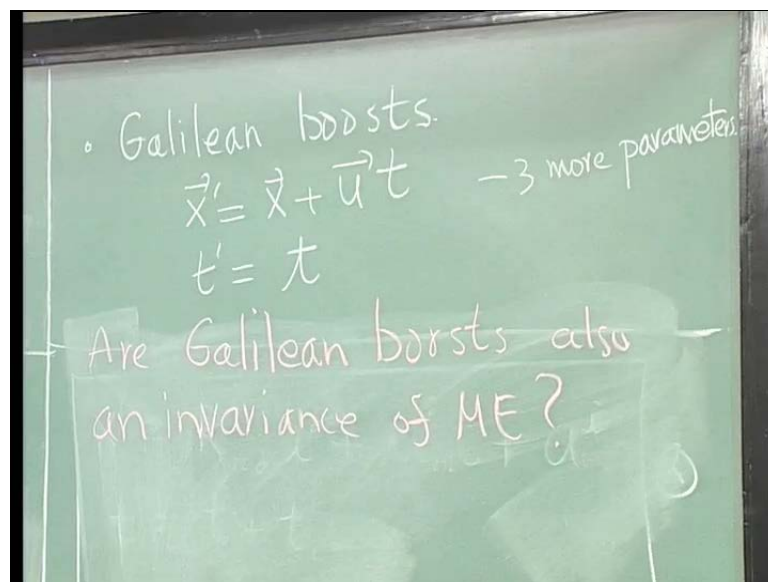 • Galilean boosts.
x⃗' = x⃗ + u⃗ t – 3 more parameters
t' = t
Are Galilean borsts also
an invariance of ME?